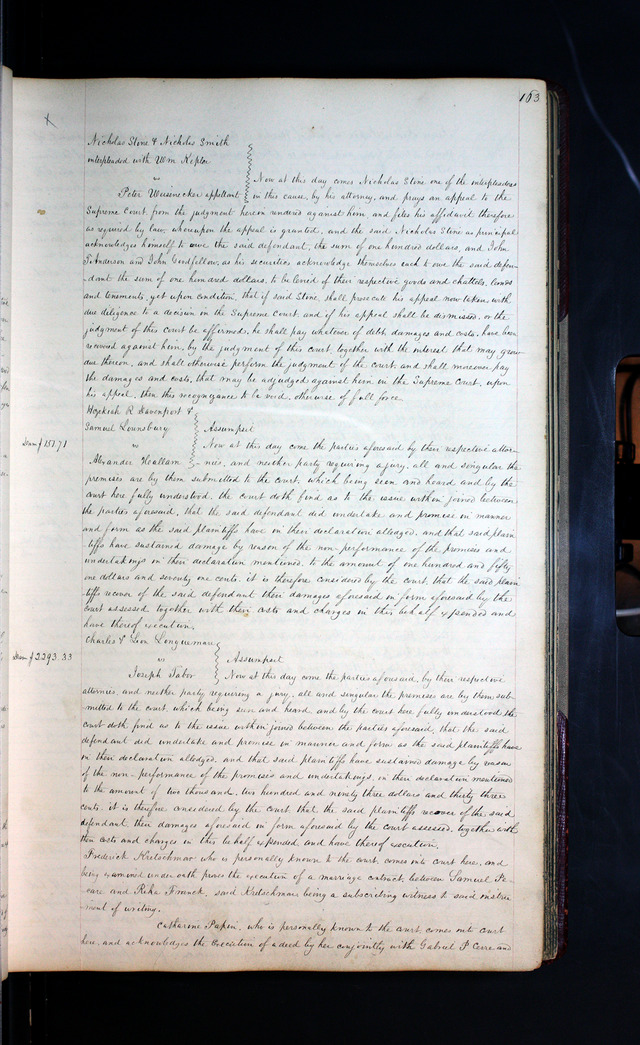 163
Nicholas Stone & Nicholas Smith
interpleaded with Wm Kepler
vs
Now at this day comes Nicholas Stone one of the interpleaders
Peter Weisnecker appellant
in this cause, by his attorney, and prays an appeal to the
Supreme Court, from the judgment hereon rendered against him, and files his affidavit therefore
as required by law, whereupon the appeal is granted, and the said Nicholas Stone as principal
acknowledges himself to owe the said defendant, the sum of one hundred dollars, and John
Anderson and John Goodfellow, as his securities acknowledge themselves each to owe the said defen-
dant the sum of one hundred dollars, to be levied of their respective goods and chattels, lands
and tenements, yet upon condition, that if said Stone, shall prosecute his appeal now taken, with
due diligence to a decision in the Supreme Court, and if his appeal shall be dismissed, or the
judgment of this court be affirmed, he shall pay whatever of debt, damages and costs, have been
recovered against him, by the judgment of this court, together with the interest that may grow
due thereon, and shall otherwise perform the judgment of the court, and shall moreover pay
the damages and costs, that may be adjudged against him in the Supreme Court, upon
his appeal, then this recognizance to be void, otherwise of full force.
R Davenport &
Samuel Lounsbury
Assumpsit
Dam $151.71
vs
Now at this day come the parties aforesaid by their respective attor-
Alexander
nies, and neither party requiring a jury, all and singular the
premises are by them submitted to the court, which being seen and heard and by the
court here fully understood, the court doth find as to the issue within joined between
the parties aforesaid, that the said defendant did undertake and promise in manner
and form as the said plaintiffs have in their declaration alledged, and that said plain
tiffs have sustained damage by reason of the non-performance of the promises and
undertakings in their declaration mentioned, to the amount of one hundred and fifty
one dollars and seventy one cents, it is therefore considered by the court, that the said plain
tiffs recover of the said defendant their damages aforesaid in form aforesaid by the
court assessed, together with their costs and charges in this behalf expended and
have thereof execution.
Charles & Leon Longuemare
Dam $2293.33
vs
Assumpsit
Joseph Tabor
Now at this day come the parties aforesaid, by their respective
attornies, and neither party requiring a jury, all and singular the premises are by them sub-
mitted to the court, which being seen and heard, and by the court here fully understood, the
court doth find as to the issue within joined between the parties aforesaid, that the said
defendant did undertake and promise in manner and form as the said plaintiffs have
in their declaration alledged, and that said plaintiffs have sustained damage by reason
of the non-performance of the promises and undertakings, in their declaration mentioned
to the amount of two thousand, two hundred and ninety three dollars and thirty three
cents, it is therefore considered by the court that the said plaintiffs recover of the said
defendant their damages aforesaid in form aforesaid by the court assessed, together with
their costs and charges in this behalf expended, and have thereof execution.
Frederick Kretschmar who is personally known to the court, comes into court here, and
being examined under oath proves the execution of a marriage contract, between Samuel
and Rika Franck, said Kretschmar being a subscribing witness to said instru-
ment of writing.
Catharine Papin, who is personally known to the court, comes into court
here, and acknowledges the execution of a deed by her conjointly with Gabriel P Cerre and